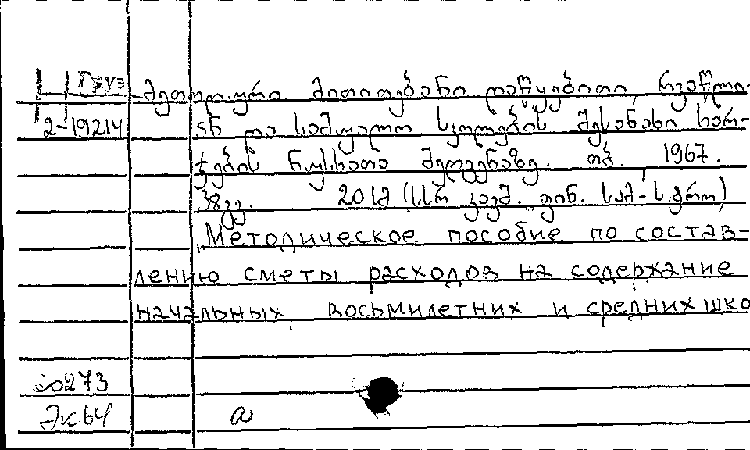 Груз
მეთოდური მითითებანი დაწყებითი, რვაწლი-
2-19214 ან და საშუალო სკოლების შესანახი ხარ-
ჯების ნუსხათა შედგენაზე. თბ. 1967.
38 გვ. 20 სმ (სსრ კავშ. ფინ. სამ-
Методическое пособие по состав-
лению сметы расходов на содержание
начальных, восьмилетних и средних шко
273
Экб4 а